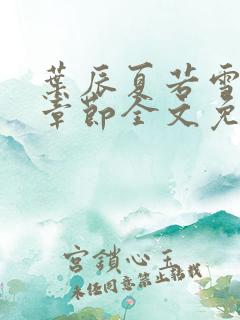 葉辰夏若雪
章節全文免
宮鎖心玉
未经同意禁止转载